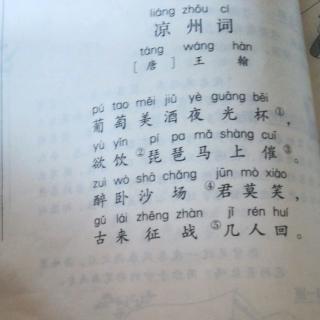 liáng zhōu cí
凉州词
táng wáng hàn
[唐] 王翰
pú tao měi jiǔ yè guāng bēi
葡萄美酒夜光杯①,
yù yǐn pí pa mǎ shàng cuī
欲饮②琵琶马上催③。
zuì wò shā chǎng jūn mò xiào
醉卧沙场④君莫笑,
gǔ lái zhēng zhàn jǐ rén huí
古来征战⑤几人回。